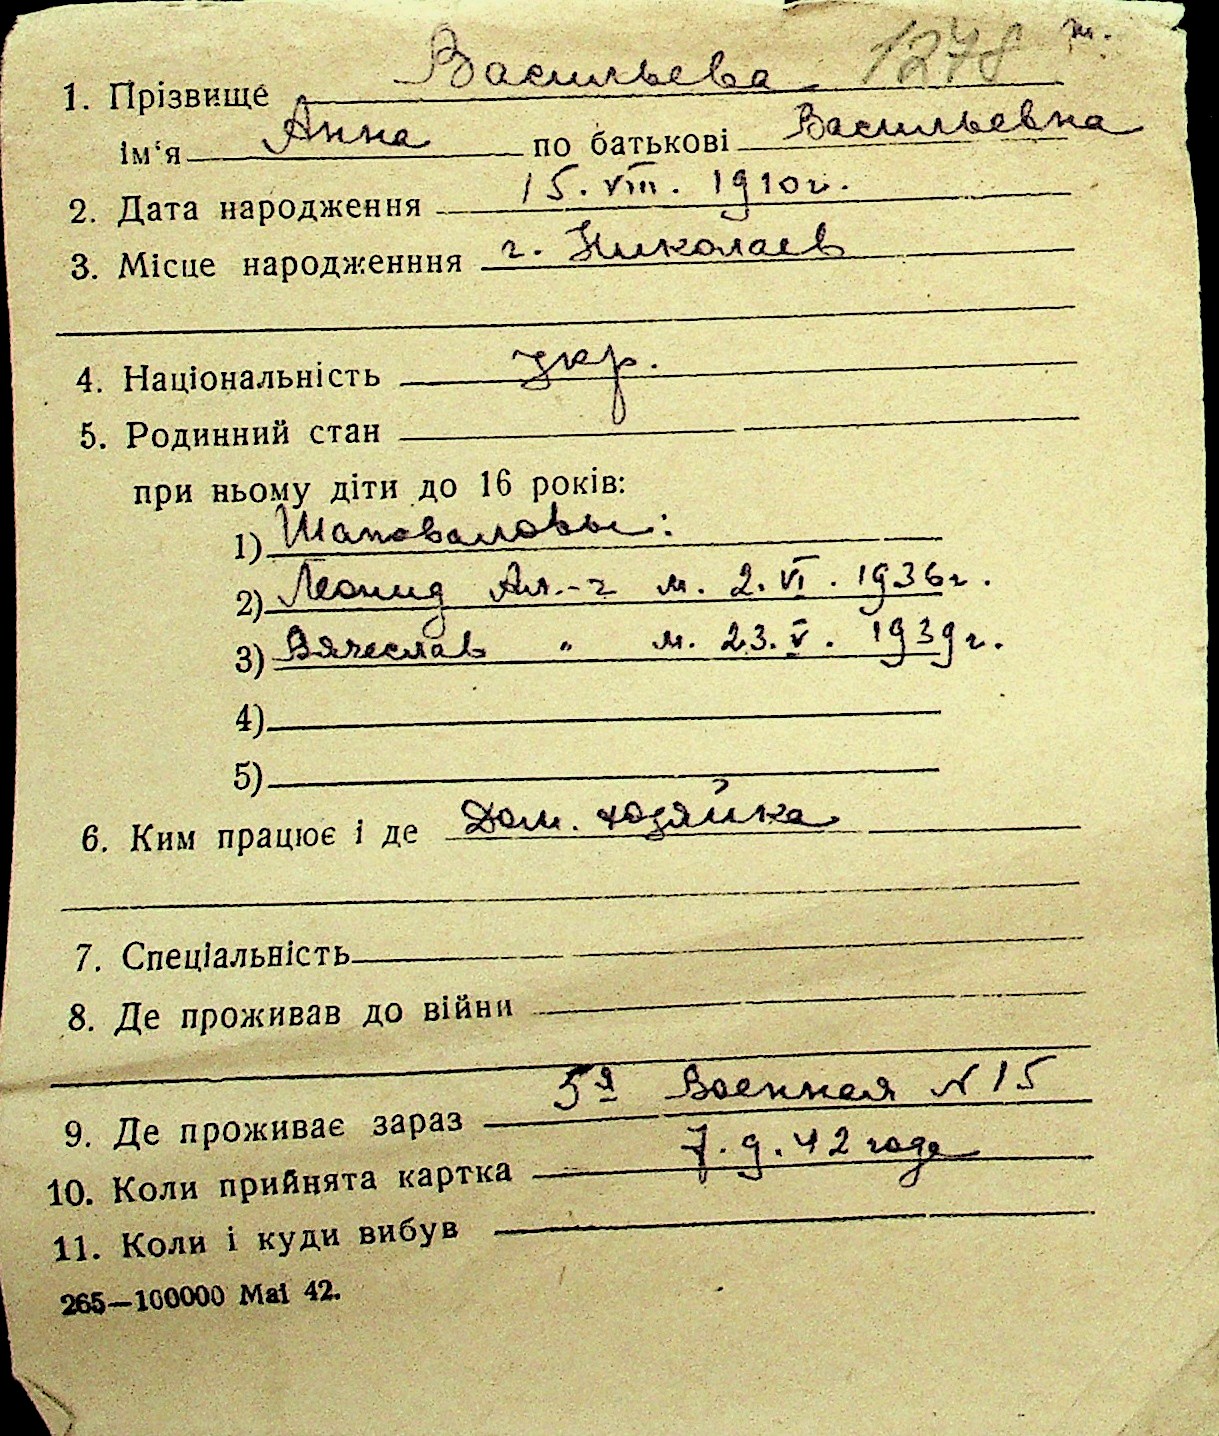 1278 т.
1. Прізвище Васильева
ім'я Анна по батькові Васильевна
2. Дата народження 15. VIII. 1910 г.
3. Місце народженння г. Николаев
4. Національність укр.
5. Родинний стан
при ньому діти до 16 років:
1) Шаповаловы:
2) Леонид Ал.-ч м. 2. VI. 1936 г.
3) Вячеслав " м. 23. V. 1939 г.
4)
5)
6. Ким працює і де Дом. хозяйка
7. Спеціальність
8. Де проживав до війни
9. Де проживає зараз 5я Военная N 15
10. Коли прийнята картка 7. 9. 42 года
11. Коли і куди вибув
265—100000 Mai 42.